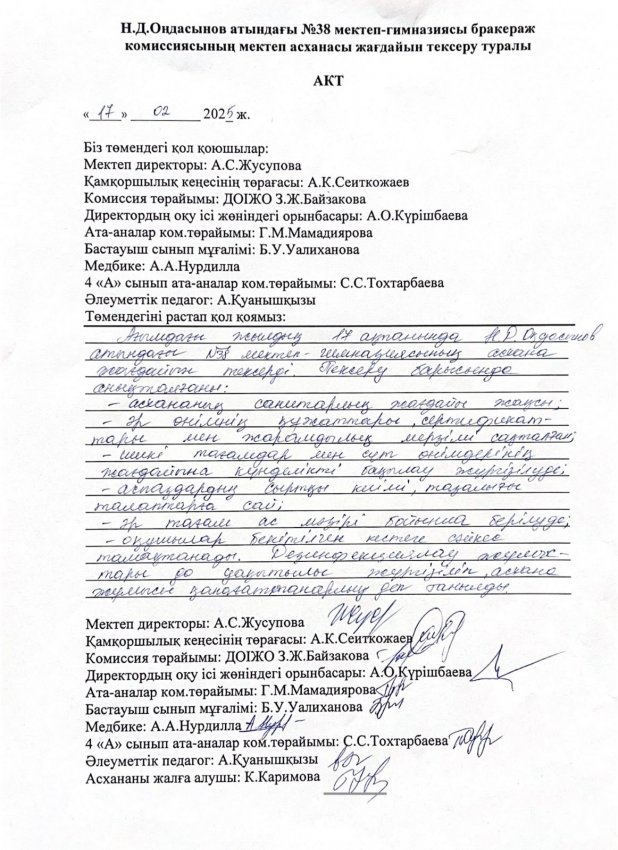 Н.Д.Оңдасынов атындағы №38 мектеп-гимназиясы бракераж
комиссиясының мектеп асханасы жағдайын тексеру туралы
АКТ
« 17 » 02 2025 ж.
Біз төмендегі қол қоюшылар:
Мектеп директоры: А.С.Жусупова
Қамқоршылық кеңесінің төрағасы: А.К.Сеиткожаев
Комиссия төрайымы: ДОІЖО З.Ж.Байзакова
Директордың оқу ісі жөніндегі орынбасары: А.О.Күрішбаева
Ата-аналар ком.төрайымы: Г.М.Мамадиярова
Бастауыш сынып мұғалімі: Б.У.Уалиханова
Медбике: А.А.Нурдилла
4 «А» сынып ата-аналар ком.төрайымы: С.С.Тохтарбаева
Әлеуметтік педагог: А.Қуанышқызы
Төмендегіні растап қол қоямыз:
Ағымдағы жылдың 17 ақпанында Н.Д.Оңдасынов
атындағы №38 мектеп-гимназиясының асхана
жағдайын тексерді. Тексеру барысында
анықталғаны:
- асхананың санитарлық жағдайы жақсы;
- әр өнімнің құжаттары, сертификат-
тары мен жарамдылық мерзімі сақталған;
- шикі тағамдар мен сүт өнімдерінің
жағдайына күнделікті бақылау жүргізілуде;
- аспаздардың сыртқы киімі, тазалығы
талаптарға сай;
- әр тағам ас мәзірі бойынша берілуде;
- оқушылар бекітілген кестеге сәйкес
тамақтанады. Дезинфекциялау жұмыс-
тары да уақытылы жүргізіліп, асхана
жұмысы қанағаттанарлық деп танылды.
Мектеп директоры: А.С.Жусупова
Қамқоршылық кеңесінің төрағасы: А.К.Сеиткожаев
Комиссия төрайымы: ДОІЖО З.Ж.Байзакова
Директордың оқу ісі жөніндегі орынбасары: А.О.Күрішбаева
Ата-аналар ком.төрайымы: Г.М.Мамадиярова
Бастауыш сынып мұғалімі: Б.У.Уалиханова
Медбике: А.А.Нурдилла
4 «А» сынып ата-аналар ком.төрайымы: С.С.Тохтарбаева
Әлеуметтік педагог: А.Қуанышқызы
Асхананы жалға алушы: К.Каримова